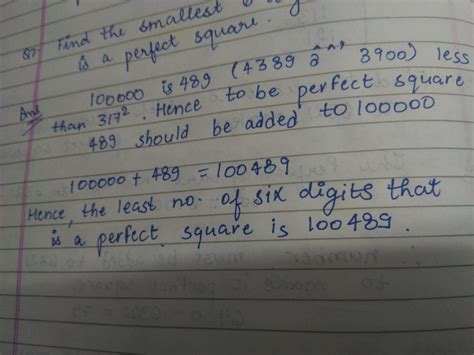 Q7. Find the smallest
is a perfect square.
Ans 100000 is 489 (4389 3900) less
than 317². Hence to be perfect square
489 should be added to 100000
100000 + 489 = 100489
Hence, the least no. of six digits that
is a perfect square is 100489.